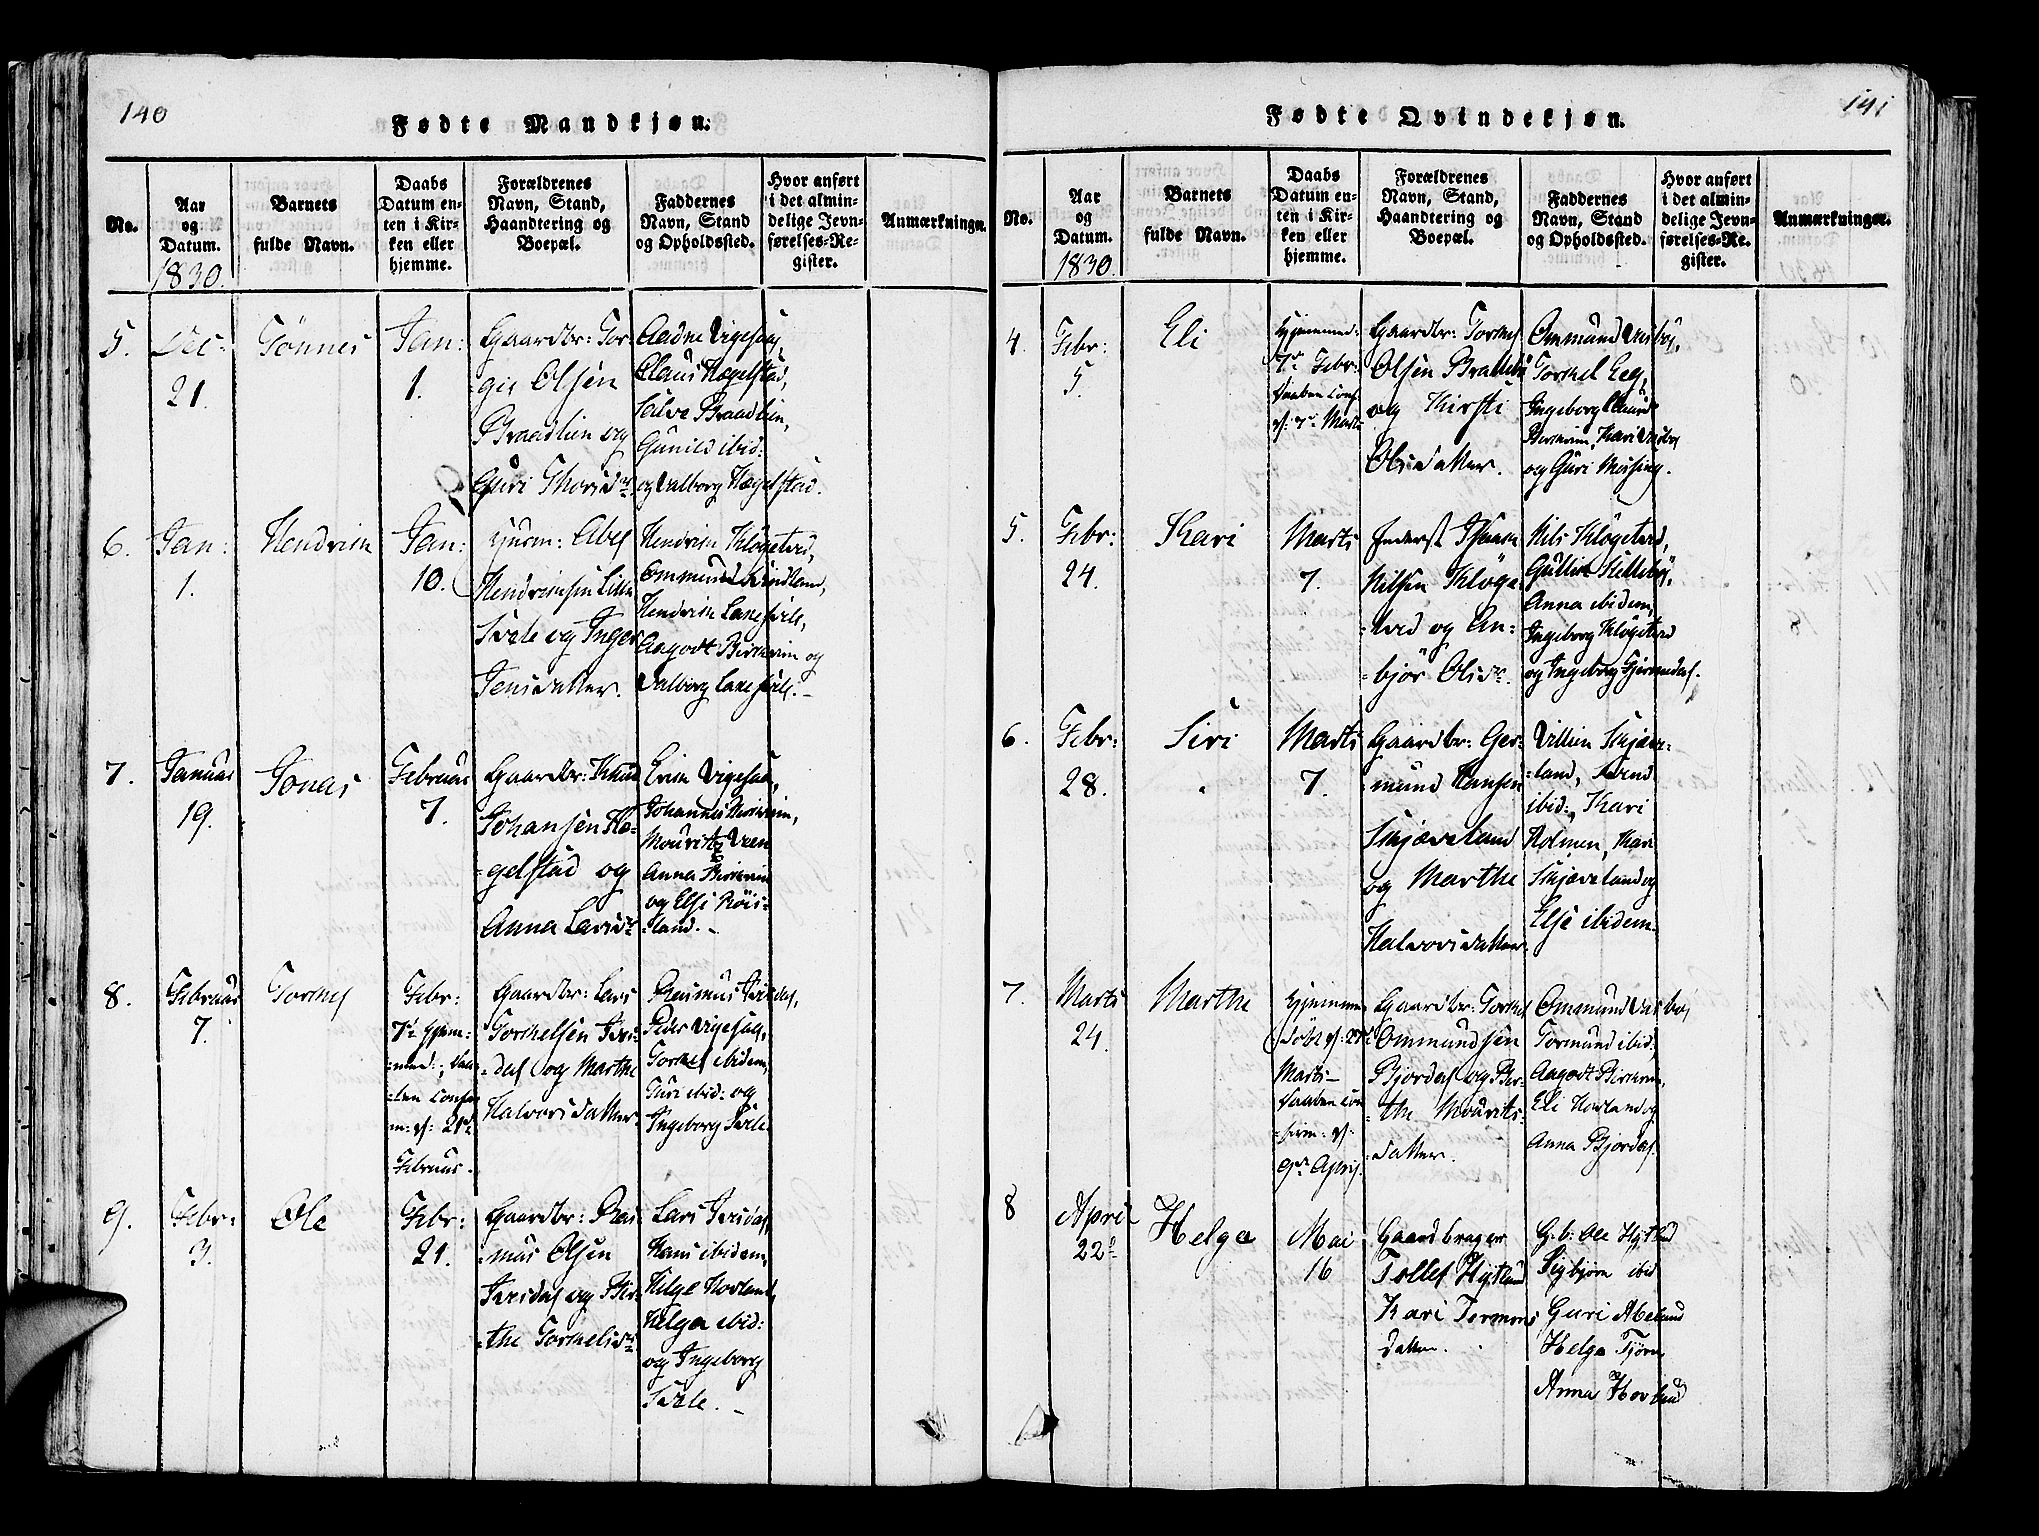 140
Fødte Mandkjøn.
No.
Aar
og
Datum.
1830.
Barnets
fulde Navn.
Daabs
Datum en-
ten i Kir-
ken eller
hjemme.
Forældrenes
Navn, Stand,
Haandtering og
Boepæl.
Faddernes
Navn, Stand
og Opholdssted.
Hvor anført
i det almin-
delige Jevn-
førelses-Re-
gister.
Anmærkninger.
5.
Dec:
21.
Tönnes
Jan:
1.
Gaardbr: Tor
-gir Olsen
Braadlien og
Guri Thorsdr.
Aadne Vigesaa,
Claus Hægelstad,
Salve Braadlien,
Gunild ibid:
og Valborg Hægelstad.
6.
Jan:
1.
Hendrich
Jan:
10.
Huusm: Abel
Hendrichsen Lille
Svele og Inger
Jensdatter.
Hendrich Klögetved,
Ommund
Hendrich
Aagodt Birkrem og
Valborg
7.
Januar
19.
Jonas
Februar
7.
Gaardbr: Knud
Johansen Hæ-
-gelstad og
Anna Larsdr
Erich Vigesaa,
Johannes Birkrem,
Mourits Veen
Anna Birkrem
og Elsi Röis-
-land. -
8.
Februar
7.
Torkel
Febr:
7de hjem-
-med:, Daa-
-ben confir
m: d: 21de
Februar.
Gaardbr: Lars
Torkelsen Ivis-
-dal og Marthe
Halvorsdatter.
Rasmus Ivisdal,
Peder Vigesaa,
Torkel ibidem,
Guri ibid: og
Ingeborg Svele
9.
Febr:
3.
Ole
Febr:
21.
Gaardbr: Ras-
-mus Olsen
Ivisdal og Bir-
-the Torkelsdr
Lars Ivisdal,
Hans ibidem,
Helge Hovland,
Helga ibid:
og Ingeborg
Svele. -
141
Fødte Qvindekjøn.
No.
Aar
og
Datum.
1830.
Barnets
fulde Navn.
Daabs
Datum en-
ten i Kir-
ken eller
hjemme.
Forældrenes
Navn, Stand,
Haandtering og
Boepæl.
Faddernes
Navn, Stand
og Opholdssted.
Hvor anført
i det almin-
delige Jevn-
førelses-Re-
gister.
Anmærkninger.
4.
Febr:
5.
Eli
Hjemmed:
7de Febr:
Daaben conf.
d: 7de Marts
Gaardbr: Torkel
Olsen
og Kirsti
Olsdatter.
Ommund Vasbö,
Torkel Eeg,
Ingeborg
Birkrem, Kari Vasbö
og Guri Mösing.
5.
Febr:
24.
Kari
Marts
7.
Nilsen Klöge-
-tved og An-
-björ Olsdr.
Nils Klögetved,
Gulliv
Anna ibidem,
Ingeborg Klögetved
og Ingeborg Gjermdal.
6.
Febr:
28.
Siri
Marts
7.
Gaardbr: Ger-
-mund Hansen
Skjæveland
og Marthe
Halvorsdatter.
Villien Skjæve-
-land, Svend
ibid:, Kari
Holmen, Kari
Skjæveland og
Elje ibidem.
7.
Marts
24.
Marthe
Hjemme
döbt d: 27de
Marts-
Daaben con
-firm: d:
9de April.
Gaardbr: Torkel
Ommundsen
Bjordal og Ber-
-the Mourits-
-datter.
Ommund Vasbö,
Tormund ibid:,
Aagodt Birkrem,
Eli Hovland og
Anna Bjordal.
8
April
22de
Helga
Mai
16
Gaardbruger
Tollef Hytland
Kari Tormons
datter.
G.b: Ole Hytland
Sigbjörn ibid
Guri Abeland
Helga Tjörn
Anna Hovland